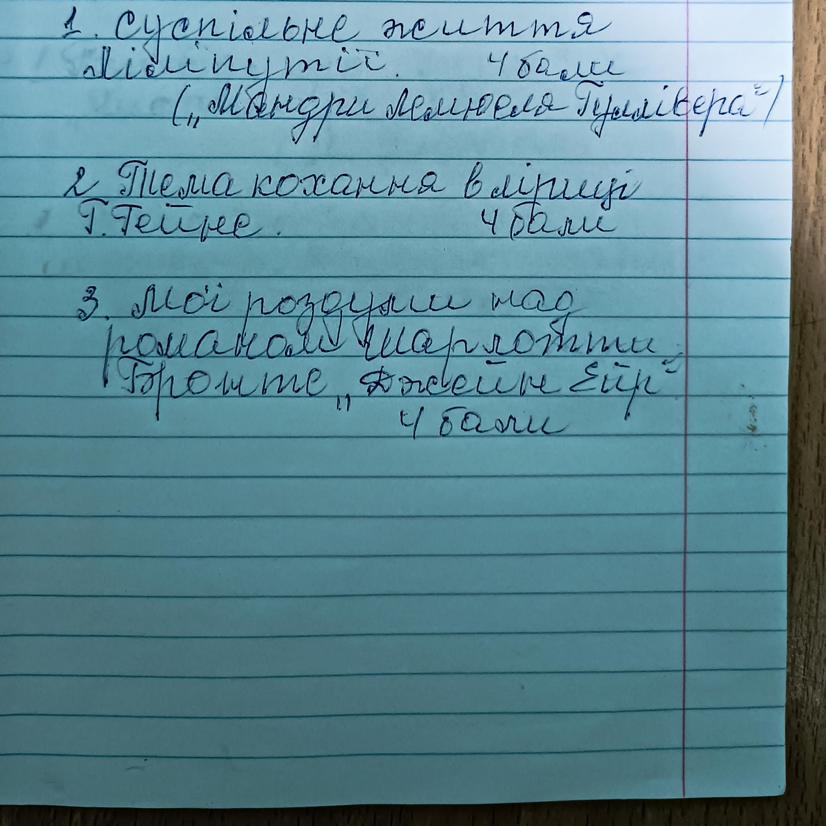 1. Суспільне життя
Ліліпутії. 4 бали
(„Мандри Лемюеля Гуллівера")
2 Тема кохання в ліриці
Г. Гейне. 4 бали
3. Мої роздуми над
романом Шарлотти
Бронте „Джейн Ейр"
4 бали